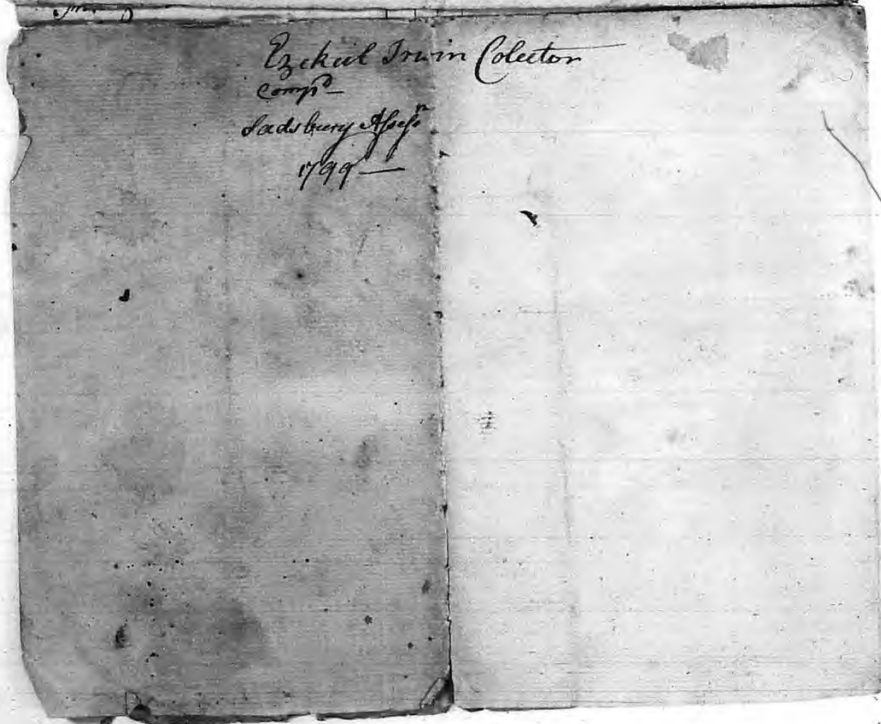 Ezekiel Irwin Colector
Comp^d
Sadsbury Assess^mt
1799